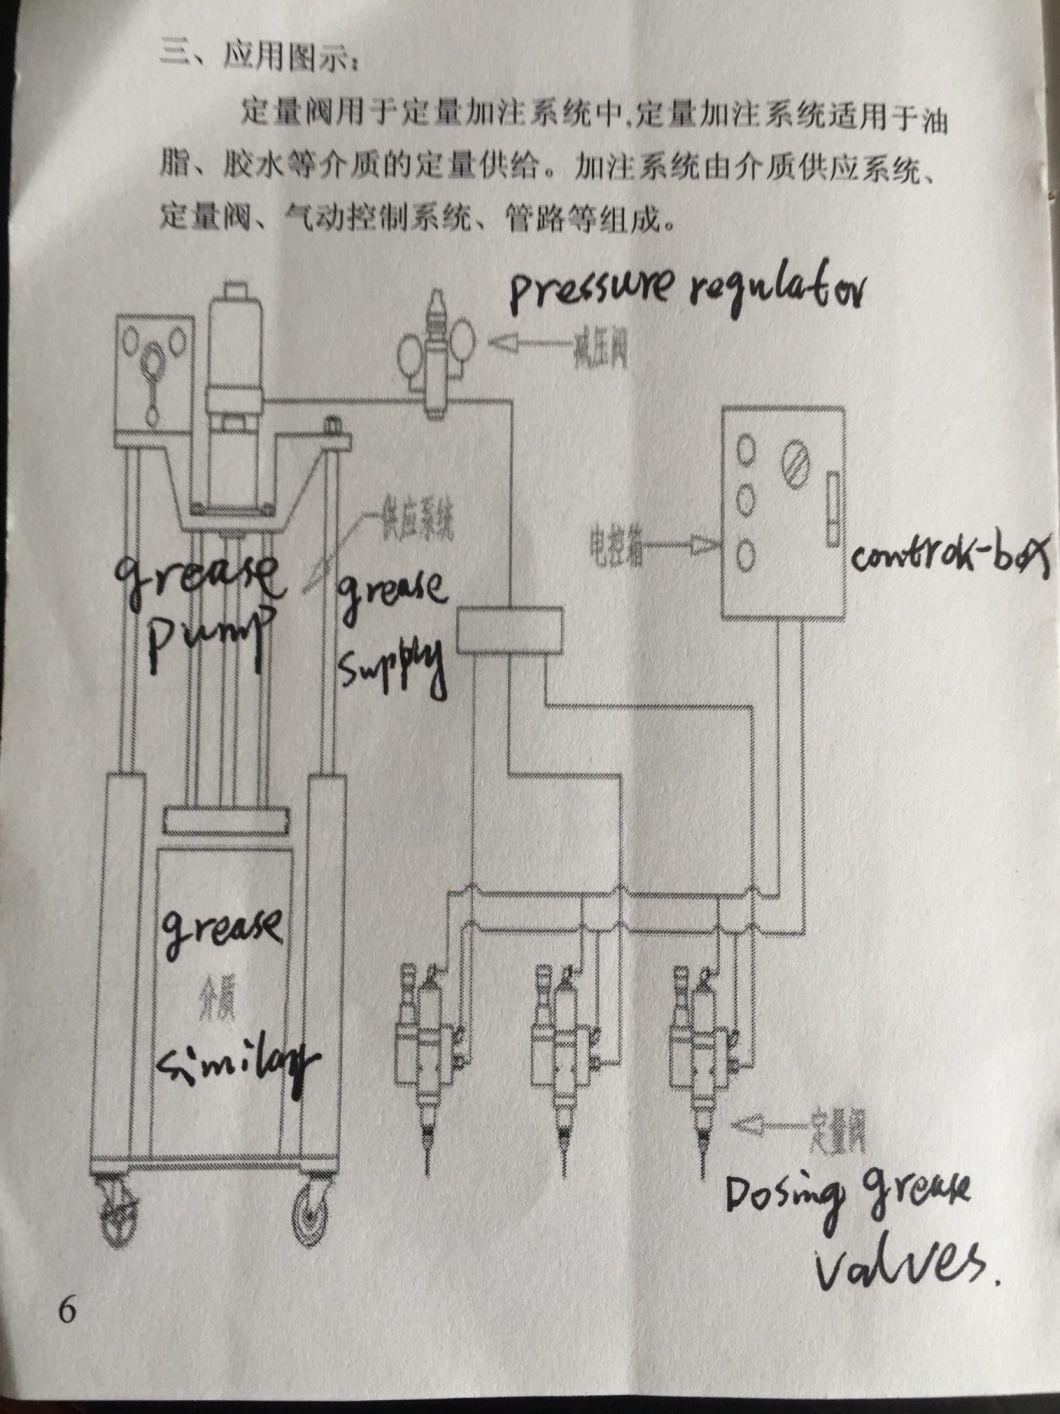 三、应用图示：
定量阀用于定量加注系统中,定量加注系统适用于油
脂、胶水等介质的定量供给。加注系统由介质供应系统、
定量阀、气动控制系统、管路等组成。
pressure regulator
减压阀
供应系统
电控箱
control-box
grease
pump
grease
supply
grease
介质
similar
定量阀
Dosing grease
valves.
6